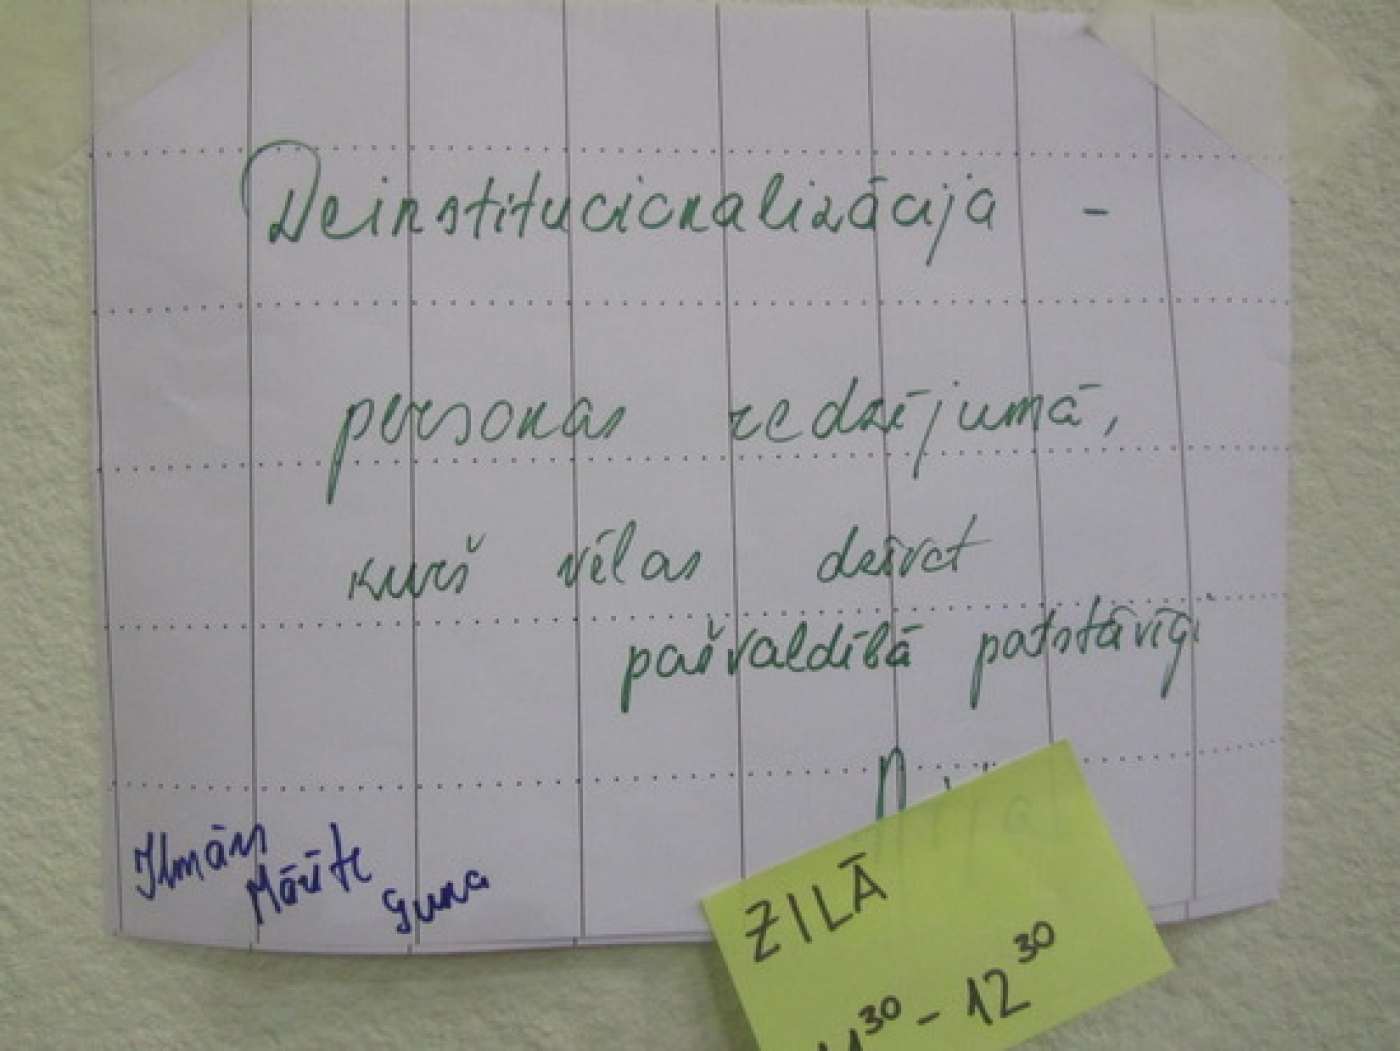 Deinstitucionalizācija -
personas redzējumā,
kurš vēlas dzīvot
pašvaldībā patstāvīgi
Ilmārs
Mārīte
Guna
ZILĀ
30 - 12 30